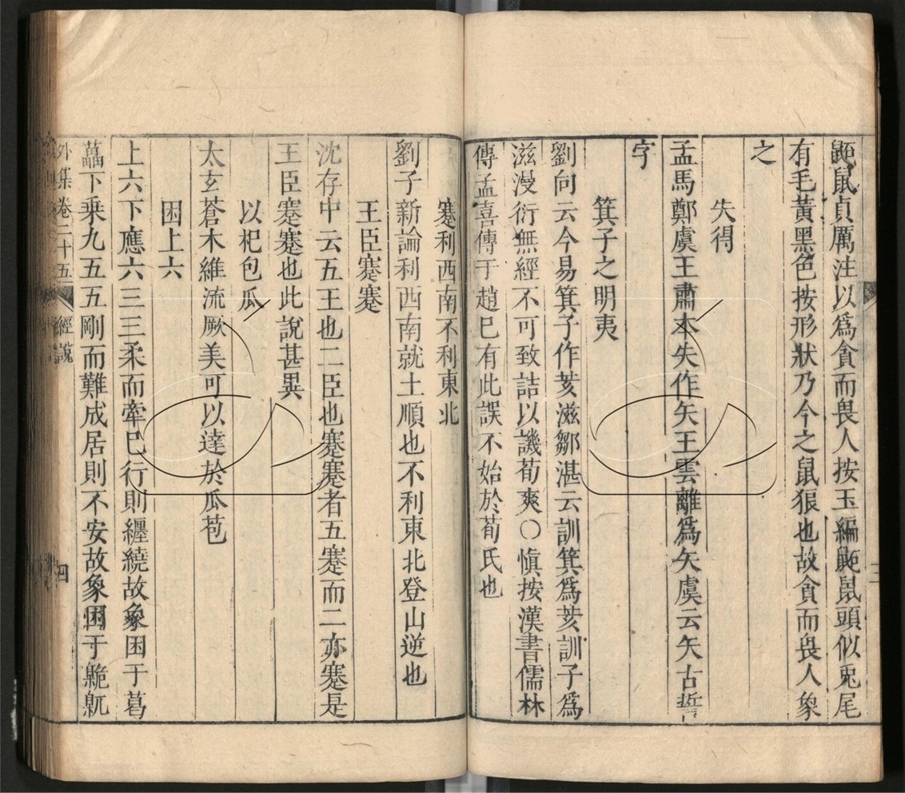 鼫鼠貞厲注以爲貪而畏人按玉編鼫鼠頭似兎尾
有毛黃黑色按形狀乃今之鼠狼也故貪而畏人象
之
失得
孟馬鄭虞王肅本失作矢王雲離爲矢虞云矢古誓
字
箕子之明夷
劉向云今易箕子作荄滋鄒湛云訓箕爲荄訓子爲
滋漫衍無經不可致詰以譏荀爽〇愼按漢書儒林
傳孟喜傳于趙巳有此誤不始於荀氏也
蹇利西南不利東北
劉子新論利西南就土順也不利東北登山逆也
王臣蹇蹇
沈存中云五王也二臣也蹇蹇者五蹇而二亦蹇是
王臣蹇蹇也此說甚異
以杞包瓜
太玄蒼木維流厥美可以達於瓜苞
困上六
上六下應六三三柔而牽巳行則纒繞故象困于葛
藟下乗九五五剛而難成居則不安故象困于臲卼
外集卷二十五 經說 四